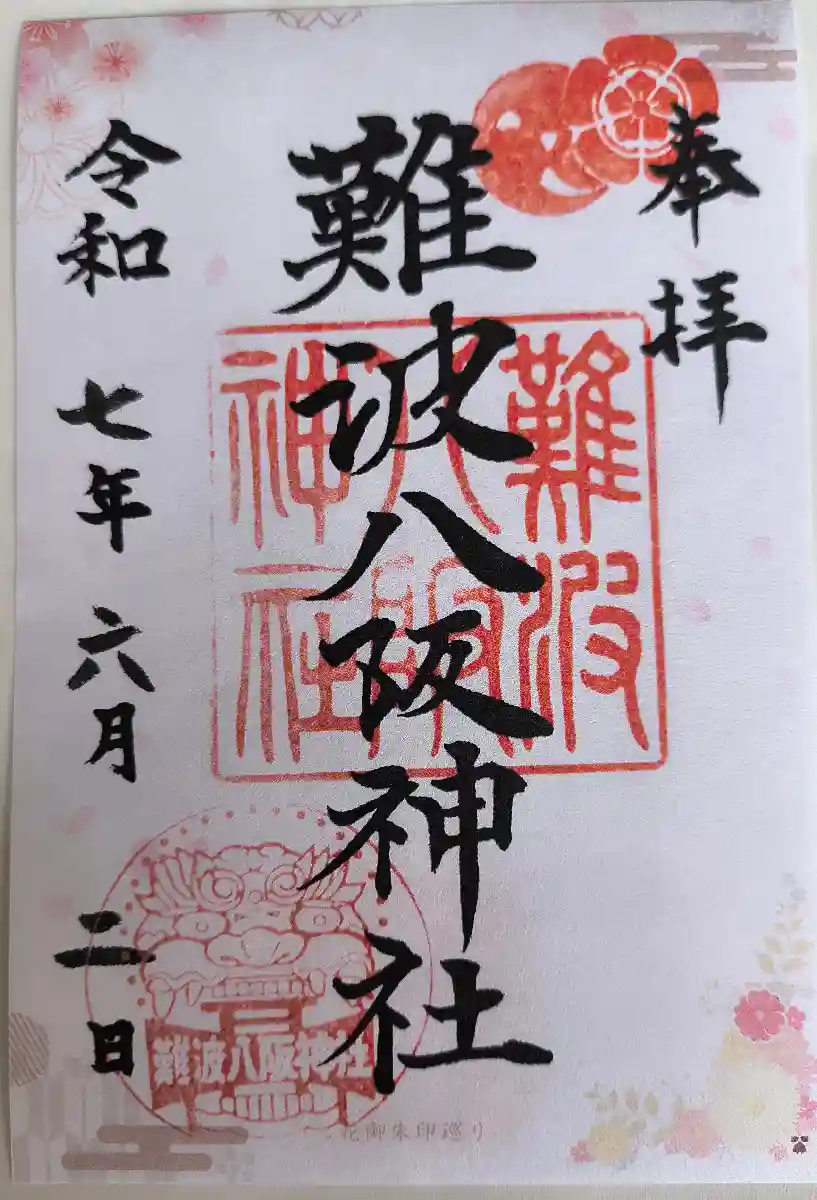 奉拝
難波八阪神社
難波八阪神社
令和七年六月二日
難波八阪神社
花御朱印巡り